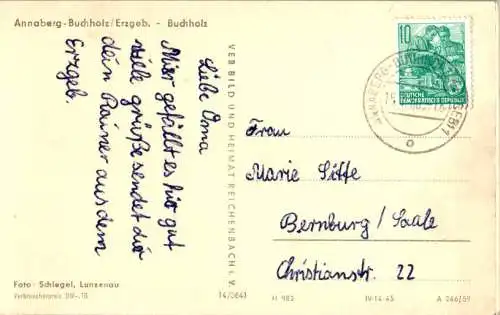 Annaberg-Buchholz/Erzgeb. - Buchholz
Liebe Oma
Mir gefällt es hir gut
viele grüße sendet dir
dein Rainer aus dem
Erzgeb.
VEB BILD UND HEIMAT REICHENBACH i. V.
10
DEUTSCHE
DEMOKRATISCHE REPUBLIK
Frau
Marie Sitte
Bernburg/Saale
Christianstr. 22
Foto: Schlegel, Lunzenau
Verbraucherpreis DM -,18
14/0641
H 982
IV-14-45
A 246/59